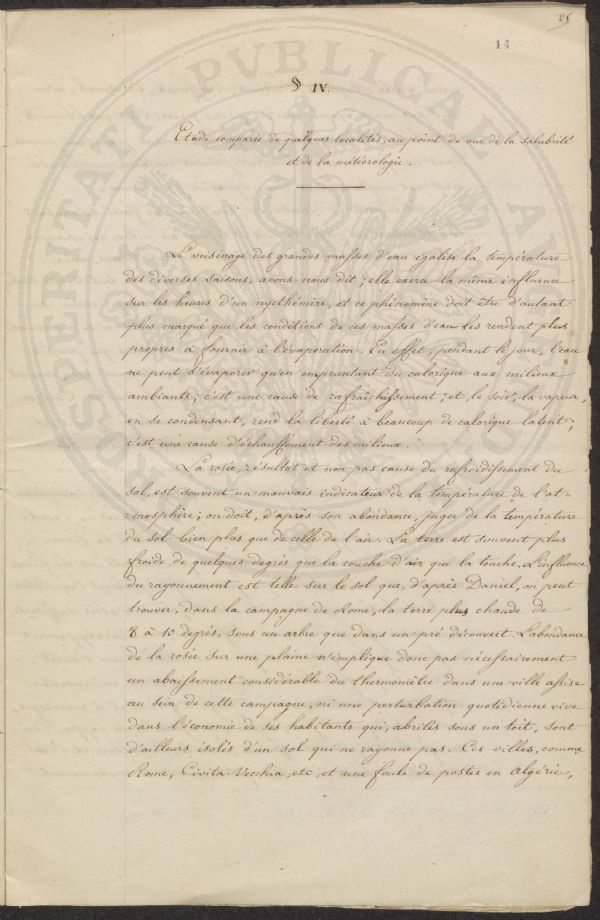 25
13
§ IV.
Etude comparée de quelques localités, au point de vue de la salubrité
et de la météorologie.
Le voisinage des grandes masses d'eau égalise la température
des diverses saisons, avons nous dit; elle exerce la même influence
sur les heures d'un nycthémère, et ce phénomène doit être d'autant
plus marqué que les conditions de ces masses d'eau les rendent plus
propres à fournir à l'évaporation. En effet, pendant le jour, l'eau
ne peut s'évaporer qu'en empruntant du calorique aux milieux
ambiants; c'est une cause de rafraîchissement; et le soir, la vapeur,
en se condensant, rend la liberté à beaucoup de calorique latent;
c'est une cause d'échauffement des milieux.
La rosée, résultat et non pas cause du refroidissement du
sol, est souvent un mauvais indicateur de la température de l'at-
mosphère; on doit, d'après son abondance, juger de la température
du sol bien plus que de celle de l'air. La terre est souvent plus
froide de quelques degrés que la couche d'air qui la touche. L'influence
du rayonnement est telle sur le sol que, d'après Daniel, on peut
trouver, dans la campagne de Rome, la terre plus chaude de
8 à 10 degrés, sous un arbre que dans un pré découvert. L'abondance
de la rosée sur une plaine n'implique donc pas nécessairement
un abaissement considérable du thermomètre dans une ville assise
au sein de cette campagne, ni une perturbation quotidienne vive
dans l'économie de ses habitants qui, abrités sous un toit, sont
d'ailleurs isolés d'un sol qui ne rayonne pas. Ces villes, comme
Rome, Civita-Vecchia, etc, et une foule de postes en Algérie,